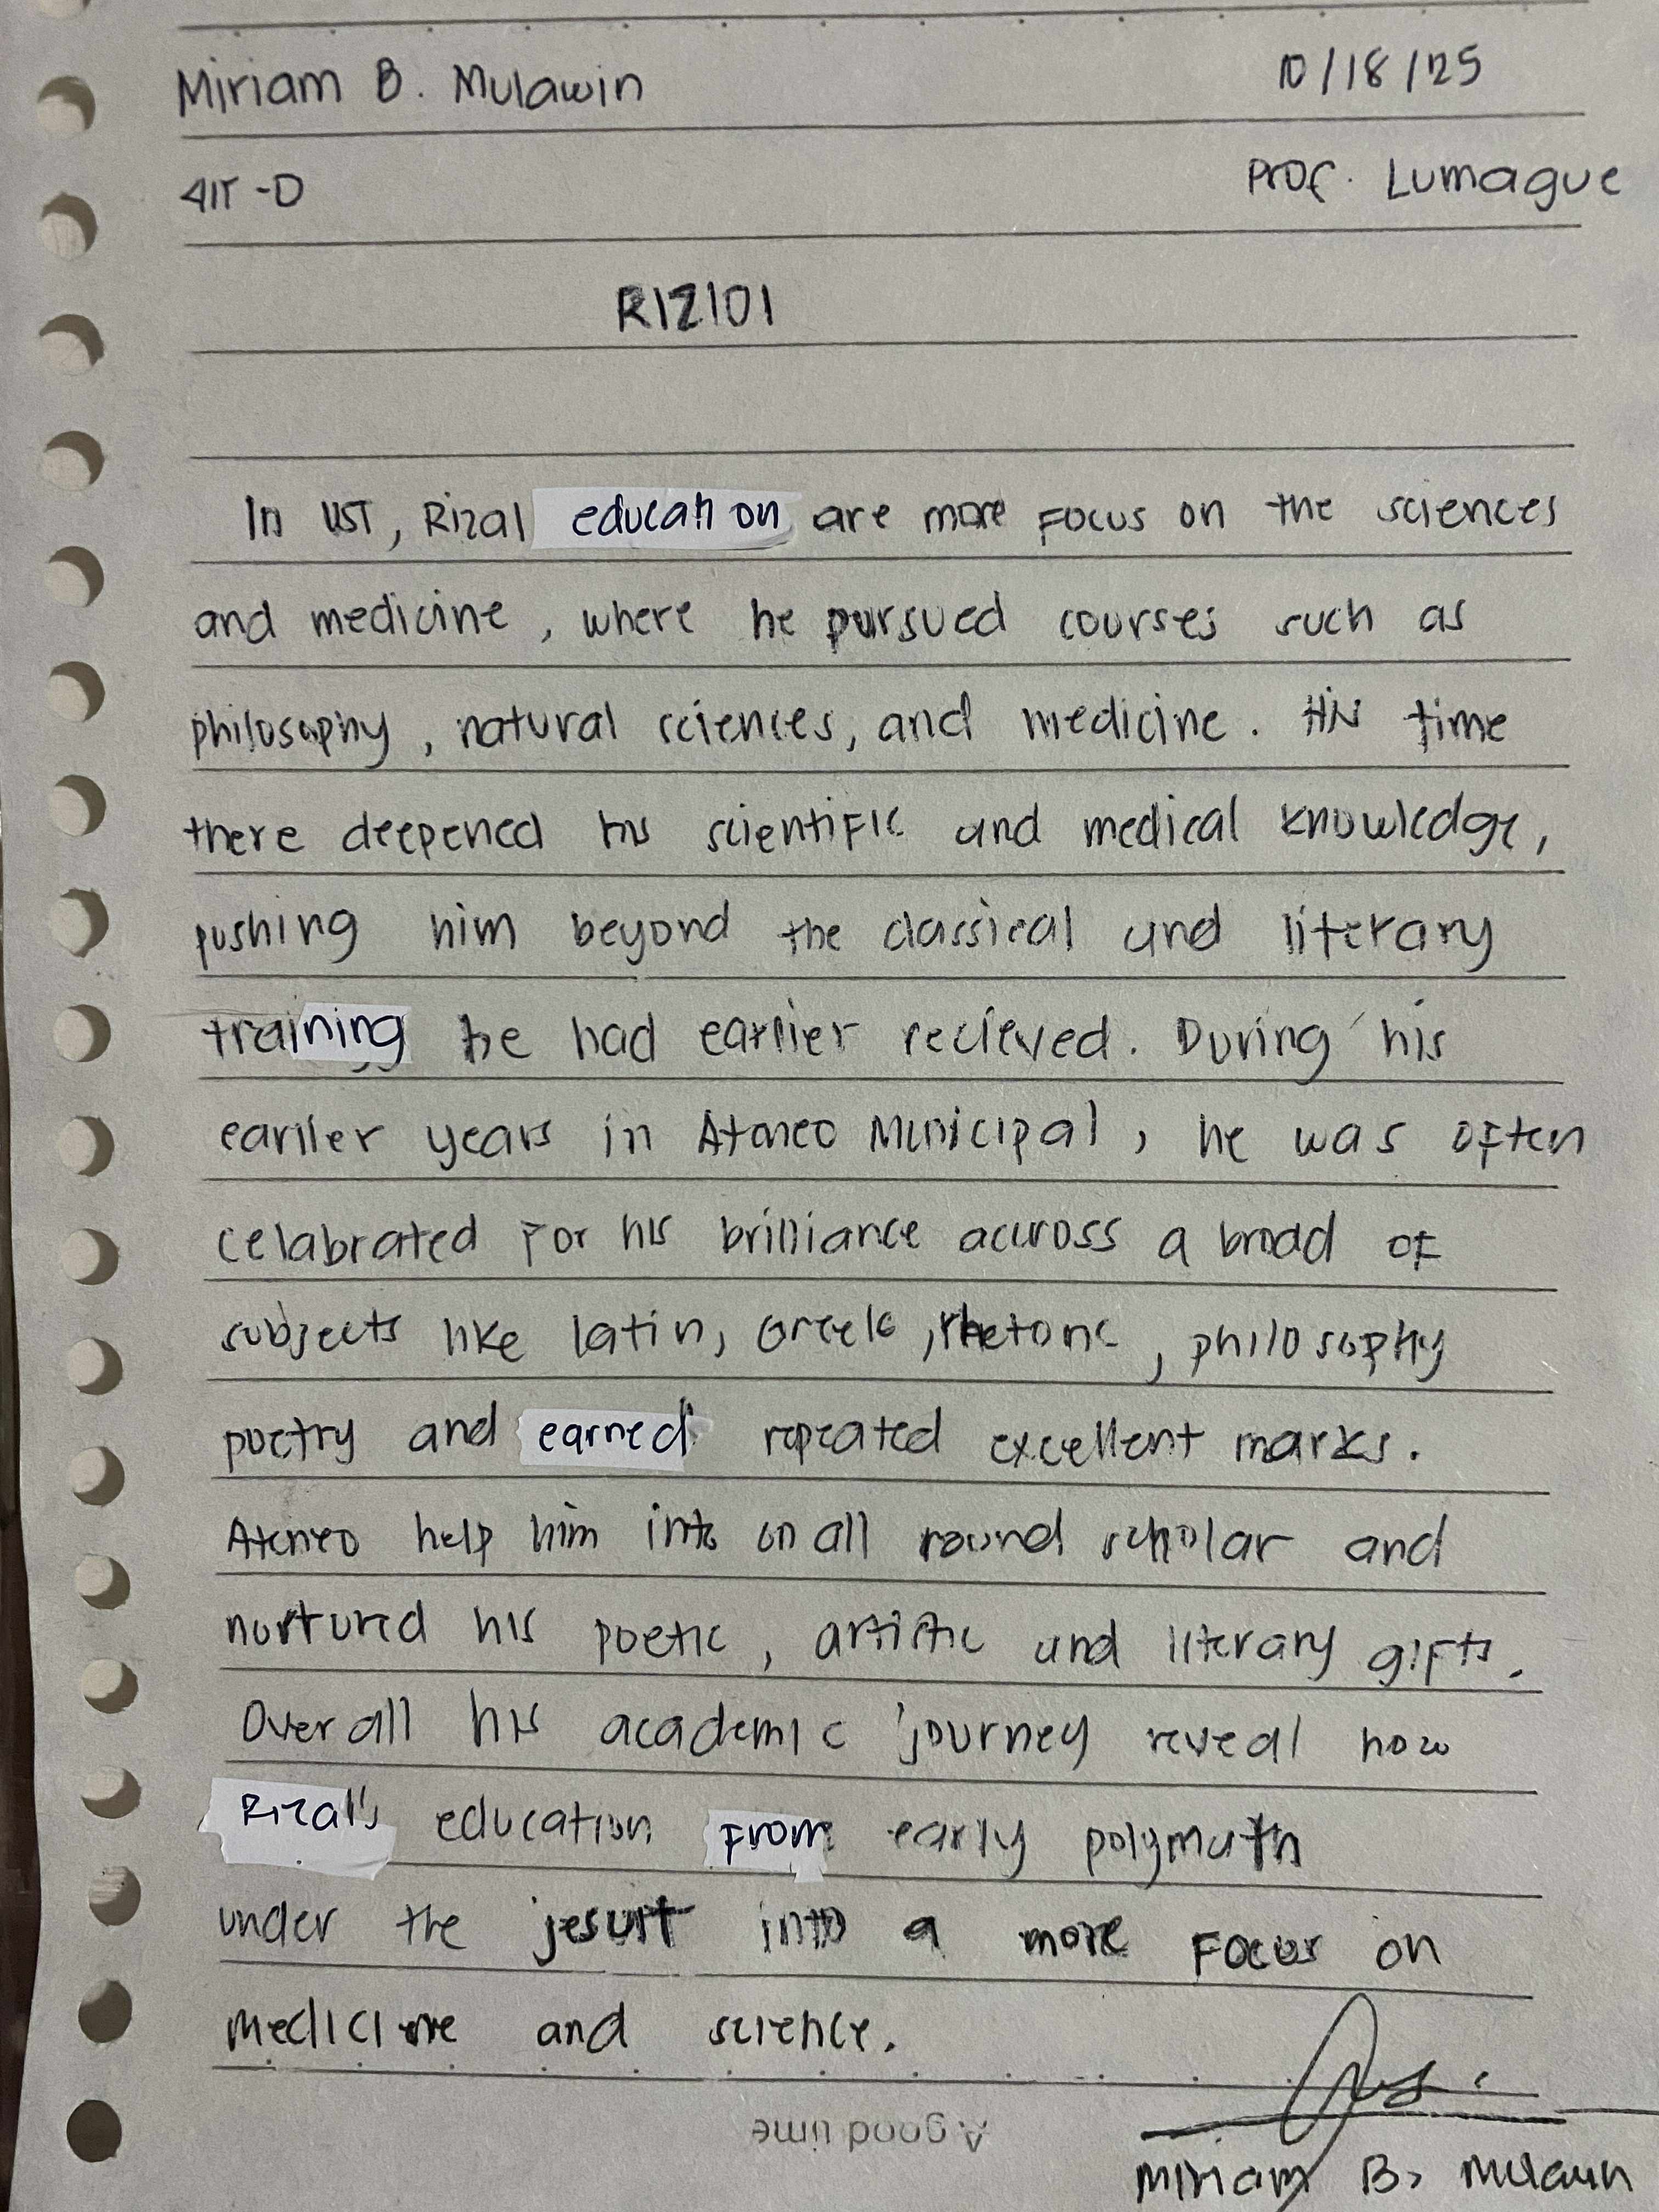 Miriam B. Mulawin 10/18/25
4IT-D Prof. Lumague
RIZ101
In UST, Rizal education are more focus on the sciences
and medicine, where he pursued courses such as
philosophy, natural sciences, and medicine. His time
there deepened his scientific and medical knowledge,
pushing him beyond the classical and literary
training he had earlier recieved. During his
earlier years in Ateneo Municipal, he was often
celabrated for his brilliance accross a broad of
subjects like latin, Greek, rhetoric, philosophy
poetry and earned repeated excellent marks.
Ateneo help him into an all round scholar and
nurtured his poetic, artistic and literary gifts.
Overall his academic journey reveal how
Rizal's education from early polymath
under the jesuit into a more focus on
medicine and science.
A good time
Miriam B. Mulawin